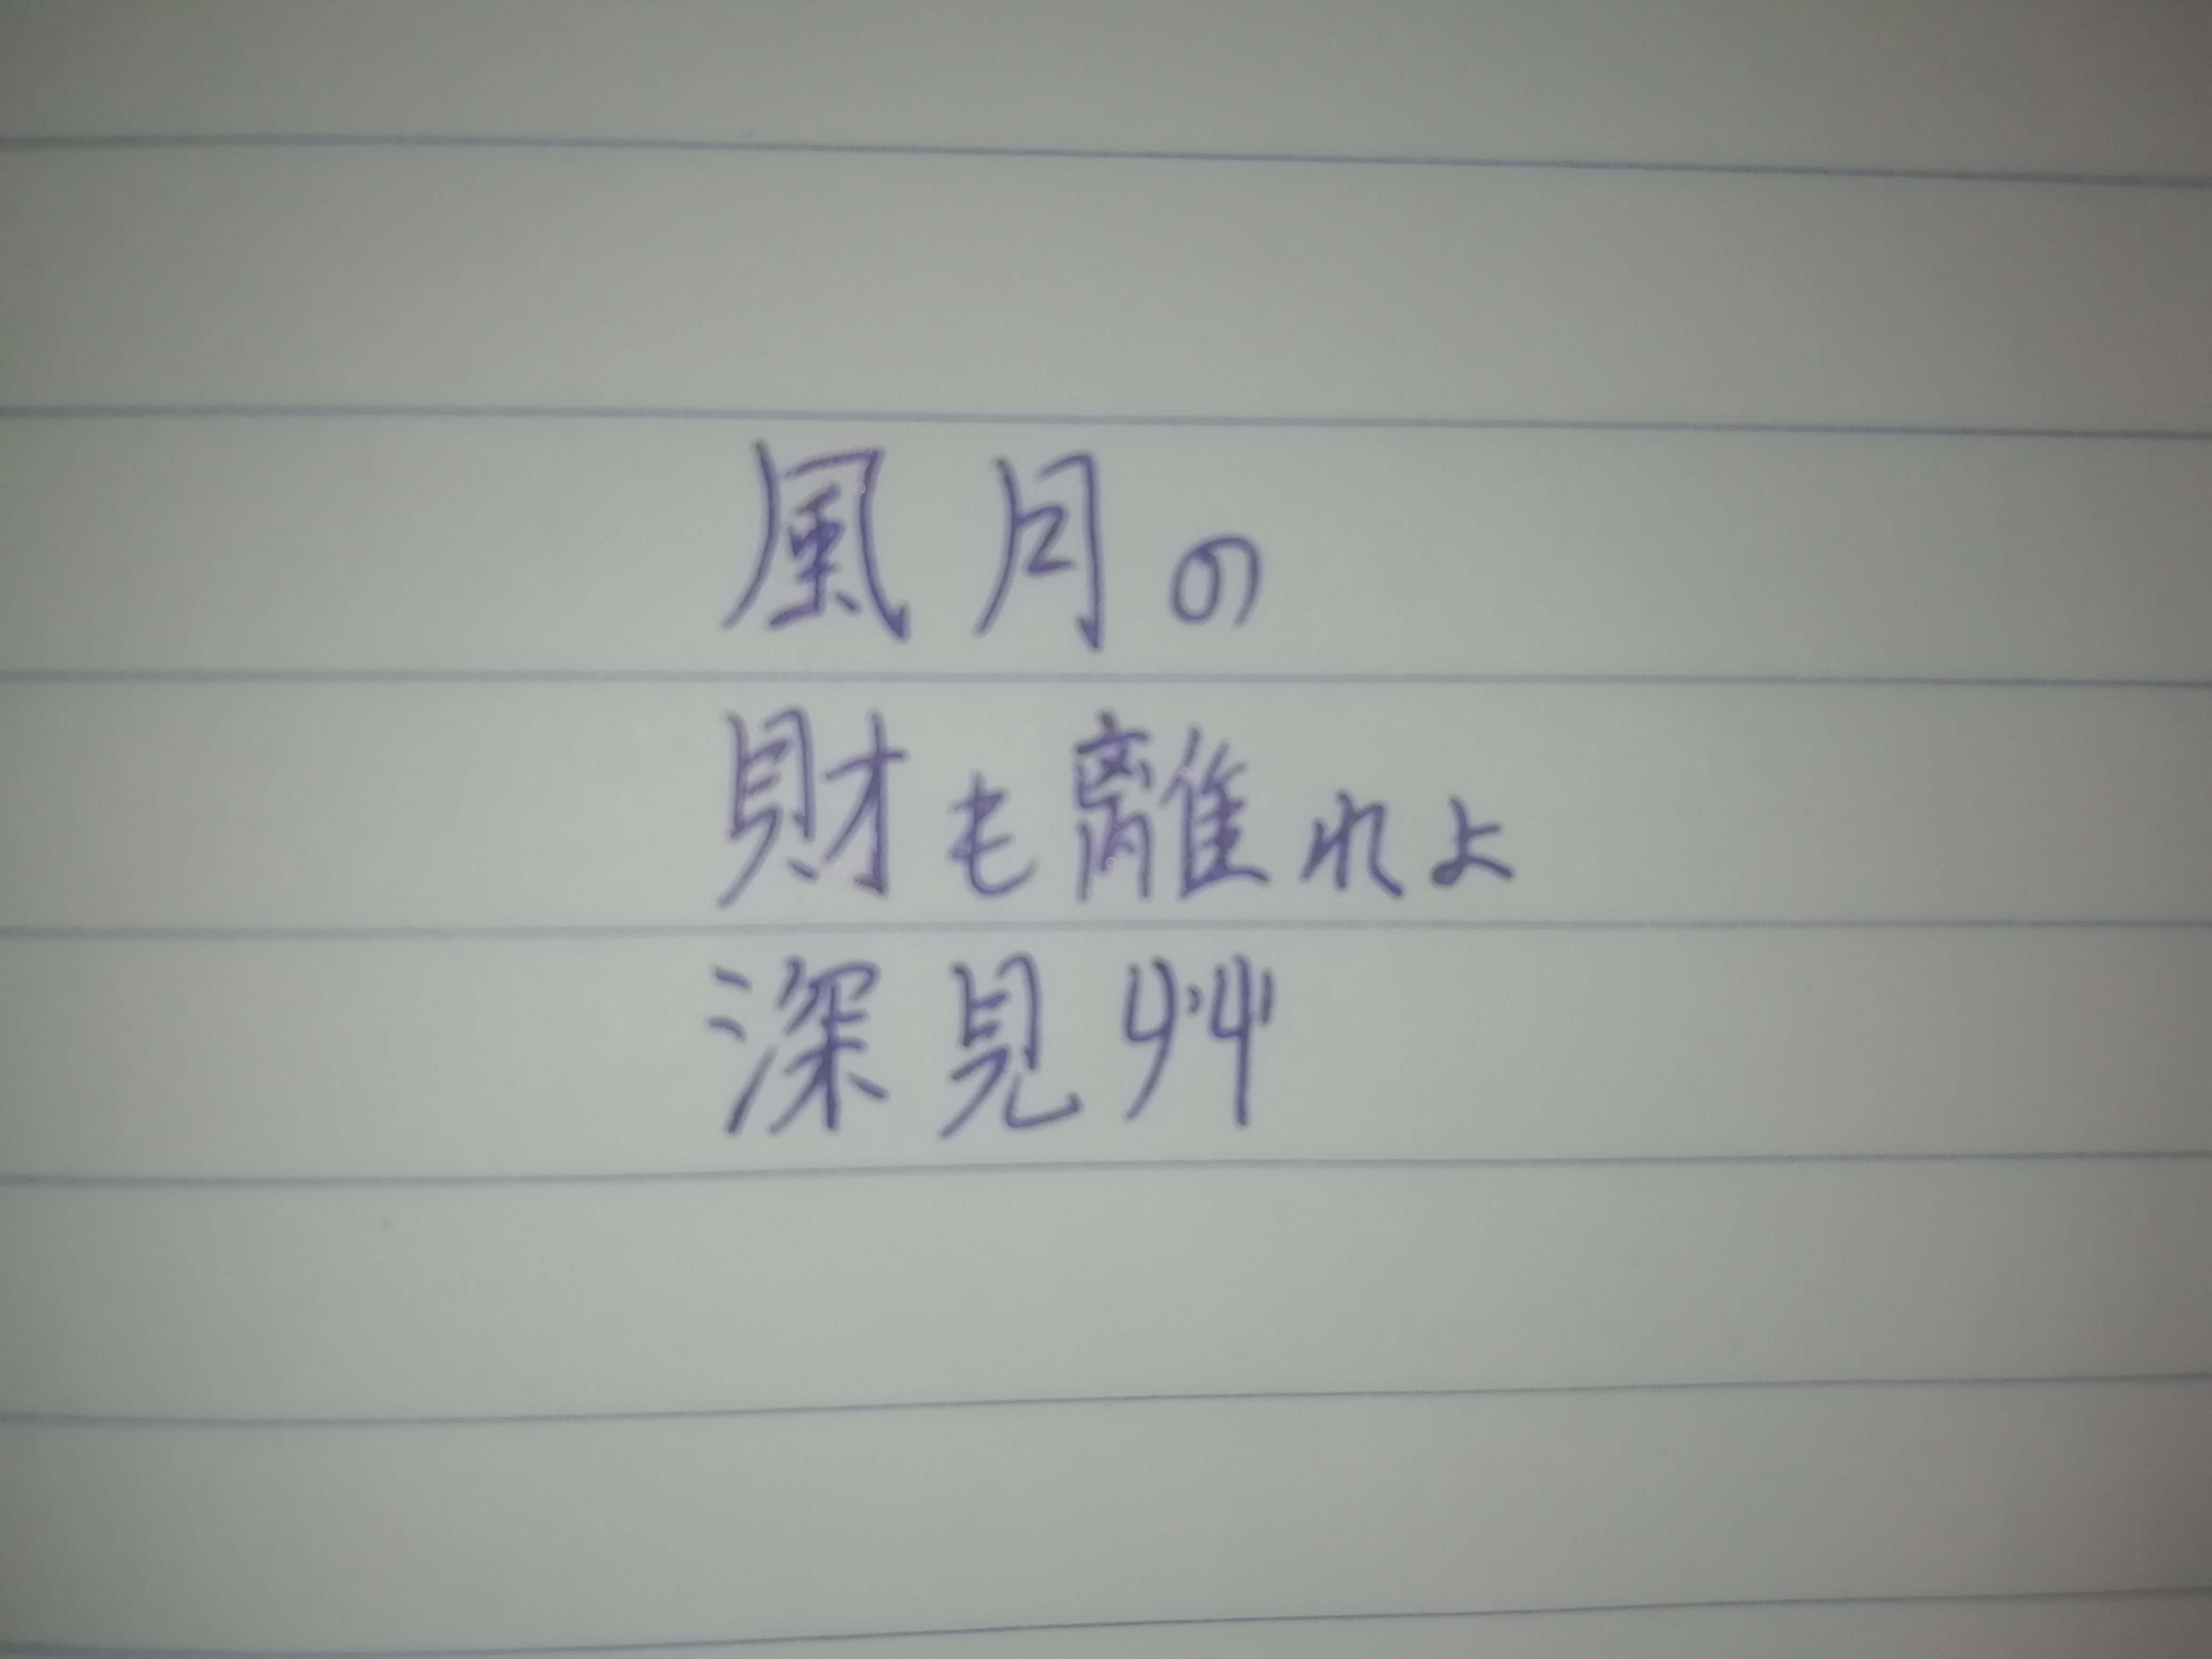 風月の
財も離れよ
深見艸